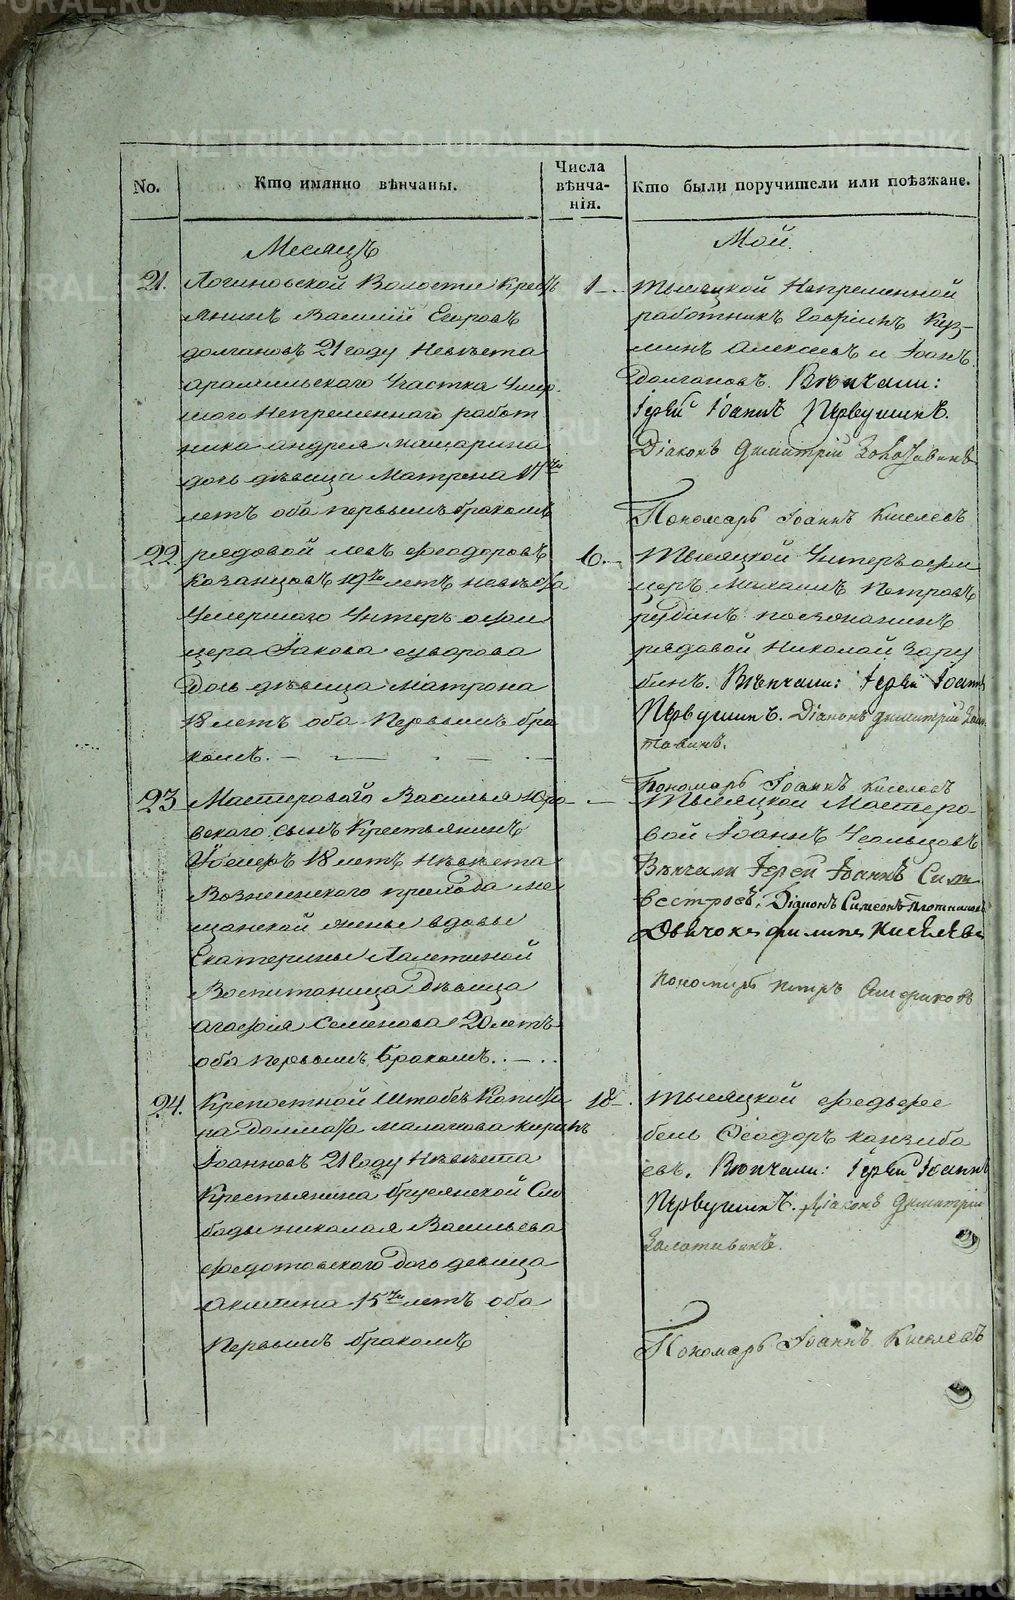 No.
Кто имянно вѣнчаны.
Числа
вѣнча-
нія.
Кто были поручители или поѣзжане.
Месяцъ
Мой.
21.
Логиновской Волости Крес
янинъ Василій Егоровъ
долгановъ 21 году Невѣста
арамильскаго Участка Умер
шаго Непременнаго работ
ника андрея
дочь дѣвица Матрона 17
летъ оба первымъ бракомъ
1
тысяцкой Непременной
работникъ Куз-
минъ алексеевъ и Іоанъ
Долгановъ. Вѣнчали:
Іерей Іоаннъ Первушинъ.
Діаконъ Димитрій
Пономарь Іоаннъ Киселевъ
22.
рядовой левъ феодоровъ
казанцовъ 19 летъ невѣста
Умершаго Унтеръ офи
цера Іакова суворова
Дочь дѣвица Матрона
18 летъ оба Первымъ бра
комъ.
6.
Тысяцкой Унтеръ офи
церъ Михаилъ Петровъ
рубинъ поезжанинъ
рядовой Николай Зару
бинъ. Вѣнчали: Іерей Іоаннъ
Первушинъ. Діаконъ Димитрій Золо
тавинъ.
Пономарь Іоаннъ Киселевъ
23
Мастероваго Василья Юро
вскаго сынъ Крестьянинъ
18 летъ Невѣста
Вознесенскаго прихода ме
щанской жены вдовы
Екатерины Палетиной
Воспитаница Дѣвица
агафія Семенова 20 летъ
оба первымъ бракомъ.
Тысяцкой Мастеро-
вой Іоаннъ
Вѣнчали Іерей Іоаннъ Сили
вестровъ. Діаконъ Симеонъ Плотниковъ
Дьячокъ филипъ Киселевъ
Пономарь Петръ
24.
Крепостной Штабсъ Капита
на Калашкова
Іоанновъ 21 году Невѣста
Крестьянина брусянской Сло
боды николая Васильева
федотовскаго дочь девица
акилина 15 летъ оба
Первымъ бракомъ
18
тысяцкой фельдфе
бель Феодоръ канзиба
евъ. Вѣнчали: Іерей Іоаннъ
Первушинъ. Діаконъ Димитрій
Золотавинъ.
Пономарь Іоаннъ Киселевъ
METRIKI.GASO-URAL.RU